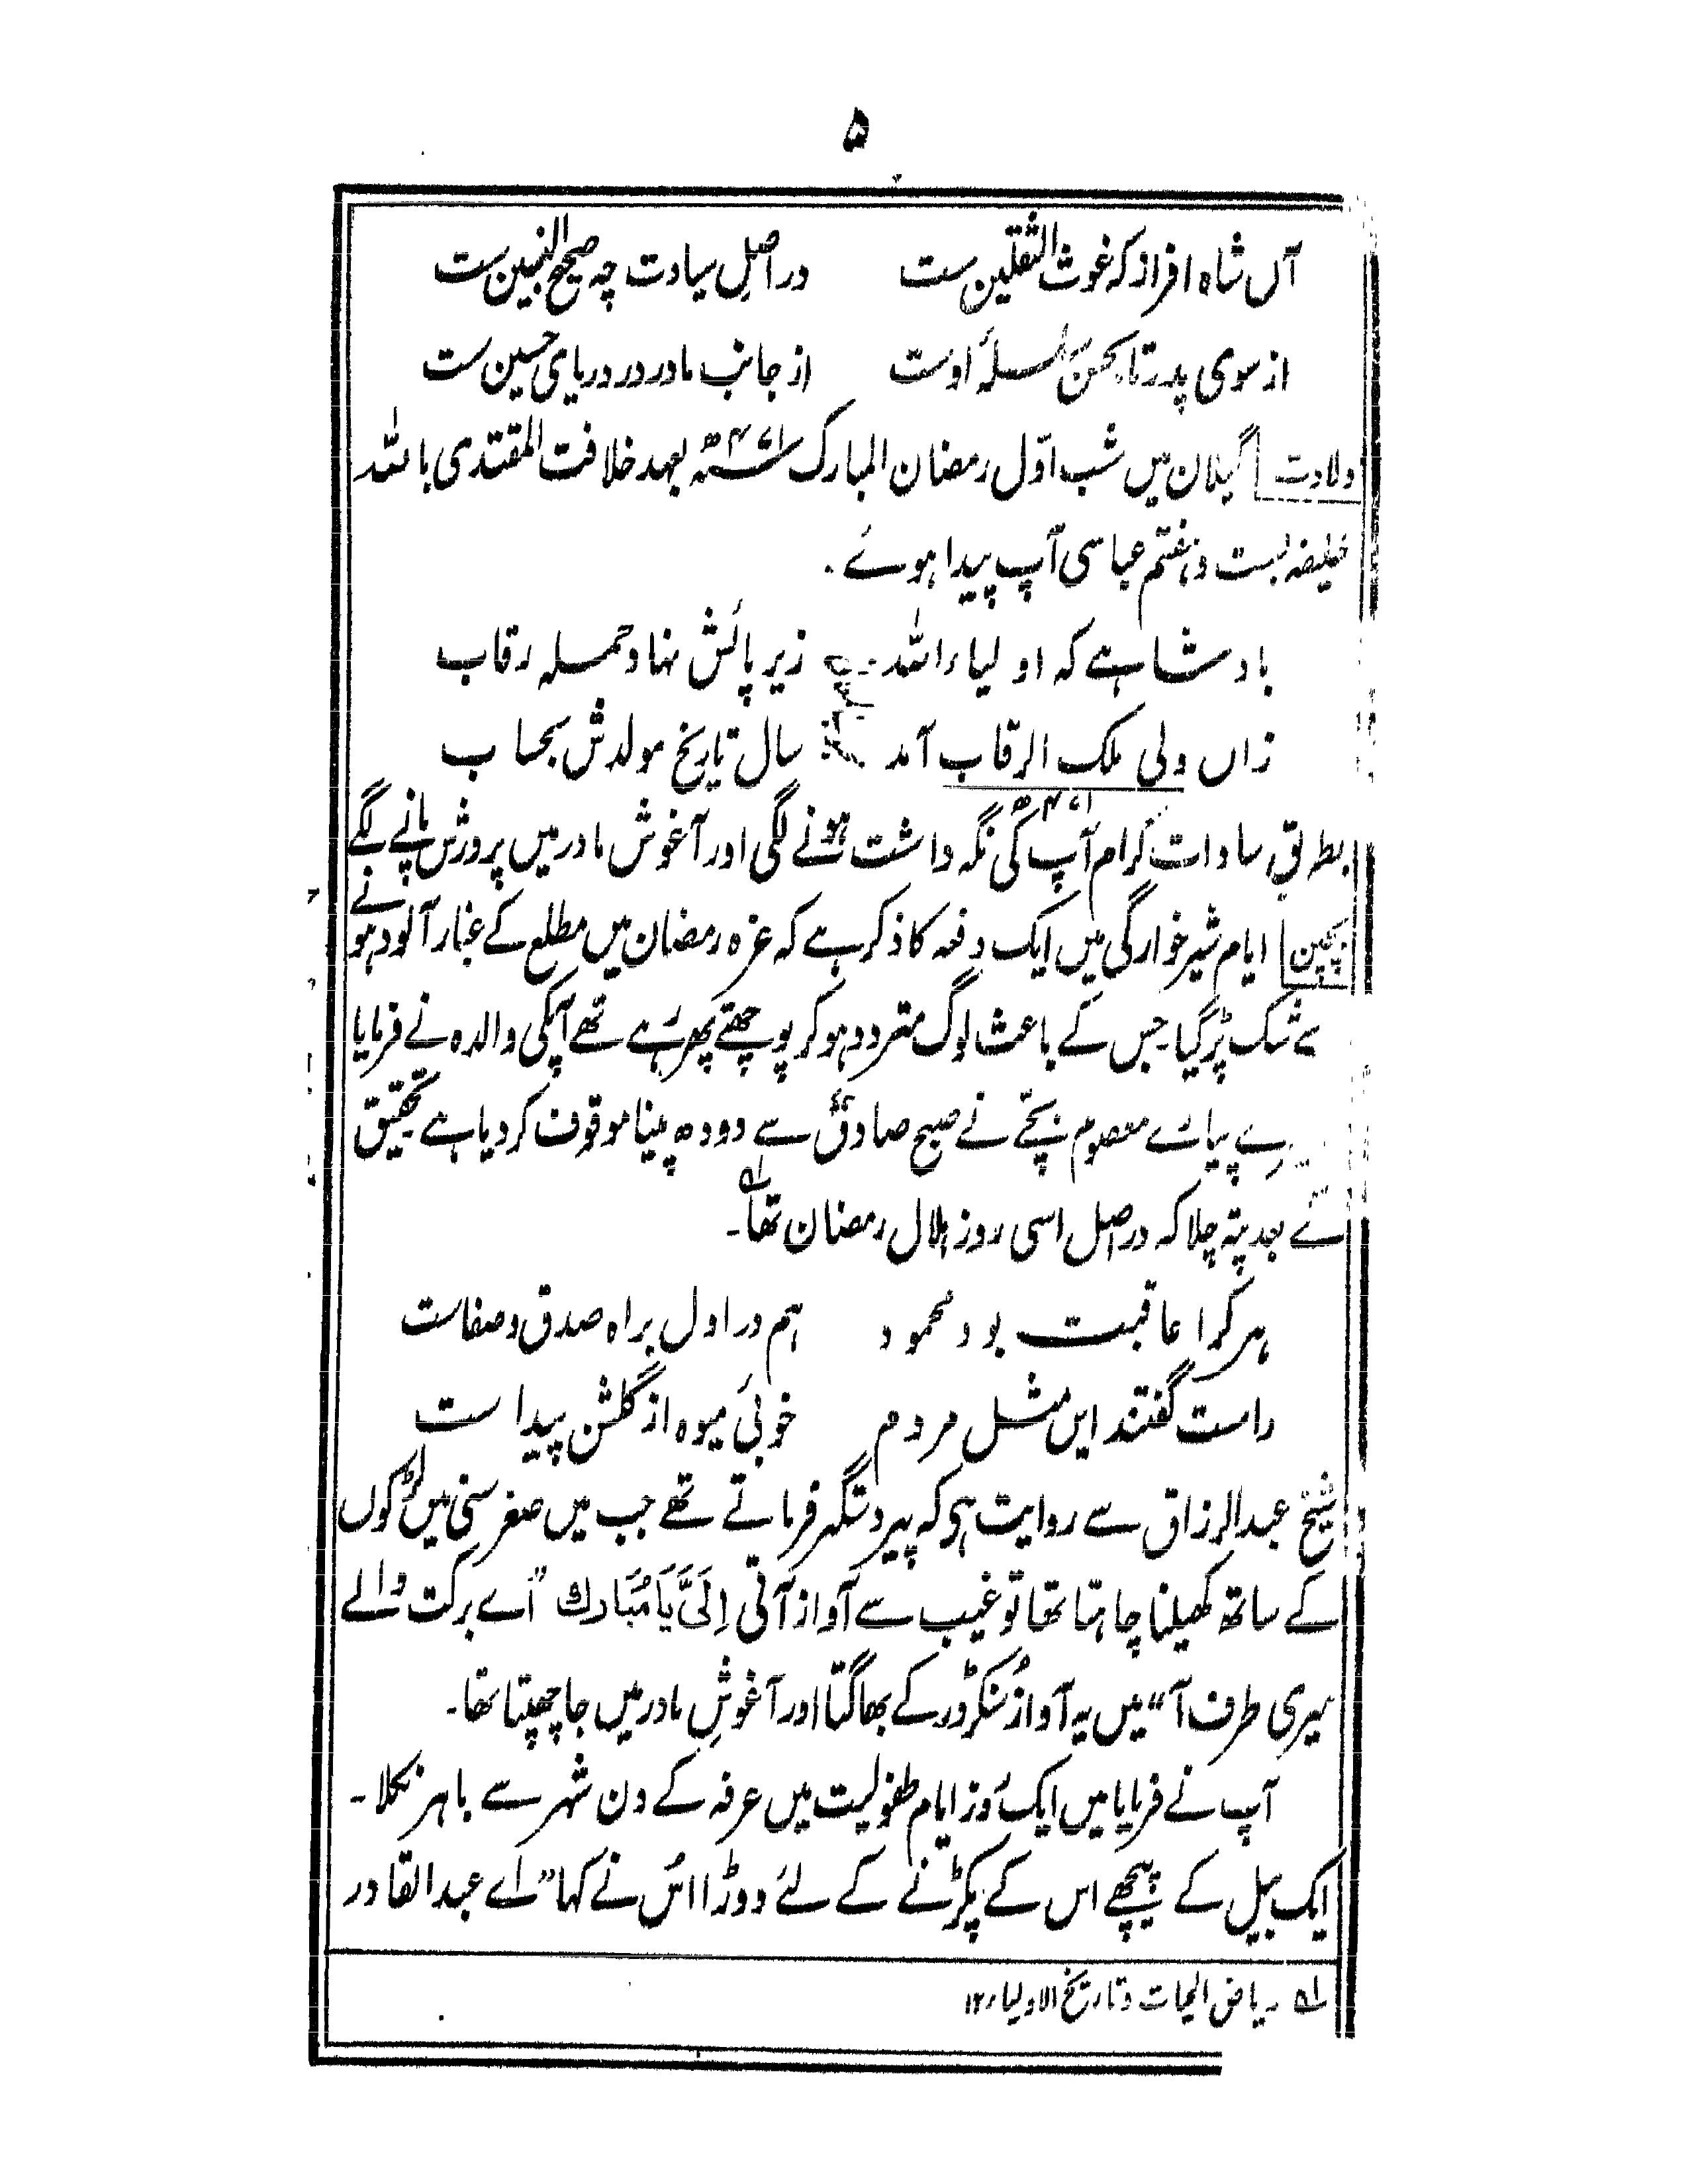 ۵
آں شاہ افراز کہ غوث الثقلین ست در اصلِ سیادت چہ صحیح النسبین ست
از سوی پدر تا بحسن سلسلۂ اوست از جانب مادر در دریای حسین ست
ولادت گیلان میں شب اوّل رمضان المبارک ۴۷۱ھ بعہد خلافت المقتدی باللہ
خلیفہ بست و ہفتم عباسی آپ پیدا ہوئے۔
بادشاہے کہ اولیاء اللہ زیر پائش نہاد جملہ رقاب
زاں ولی ملک الرقاب آمد سال تاریخ مولدش بحساب
۴۷۱ھ
بطریق سادات کرام آپ کی نگہ داشت ہونے لگی اور آغوش مادر میں پرورش پانے لگے
بچپن ایام شیر خوارگی میں ایک دفعہ کا ذکر ہے کہ غرہ رمضان میں مطلع کے غبار آلود ہونے
سے شک پڑ گیا۔ جس کے باعث لوگ متردد ہو کر پوچھتے پھر رہے تھے آپکی والدہ نے فرمایا
پیارے معصوم بچّے نے صبح صادق سے دودھ پینا موقوف کر دیا ہے تحقیق
کے بعد پتہ چلا کہ دراصل اسی روز ہلال رمضان تھا۔ لہ
ہر کرا عاقبت بود محمود ہم در اول براہ صدق و صفاست
راست گفتند ایں مثل مردم خوبیٔ میوہ از گلشن پیدا ست
شیخ عبدالرزاق سے روایت ہی کہ پیر دستگیر فرماتے تھے جب میں صغر سنی میں لڑکوں
کے ساتھ کھیلنا چاہتا تھا تو غیب سے آواز آتی اِلَیَّ یَا مُبَارك "اے برکت والے
میری طرف آ" میں یہ آواز سُنکر ڈر کے بھاگتا اور آغوشِ مادر میں جا چھپتا تھا۔
آپ نے فرمایا میں ایک روز ایام طفولیت میں عرفہ کے دن شہر سے باہر نکلا۔
ایک بیل کے پیچھے اس کے پکڑنے کے لئے دوڑا اُس نے کہا "اے عبدالقادر
لہ ریاض الحیات و تاریخ الاولیاء ۱۲